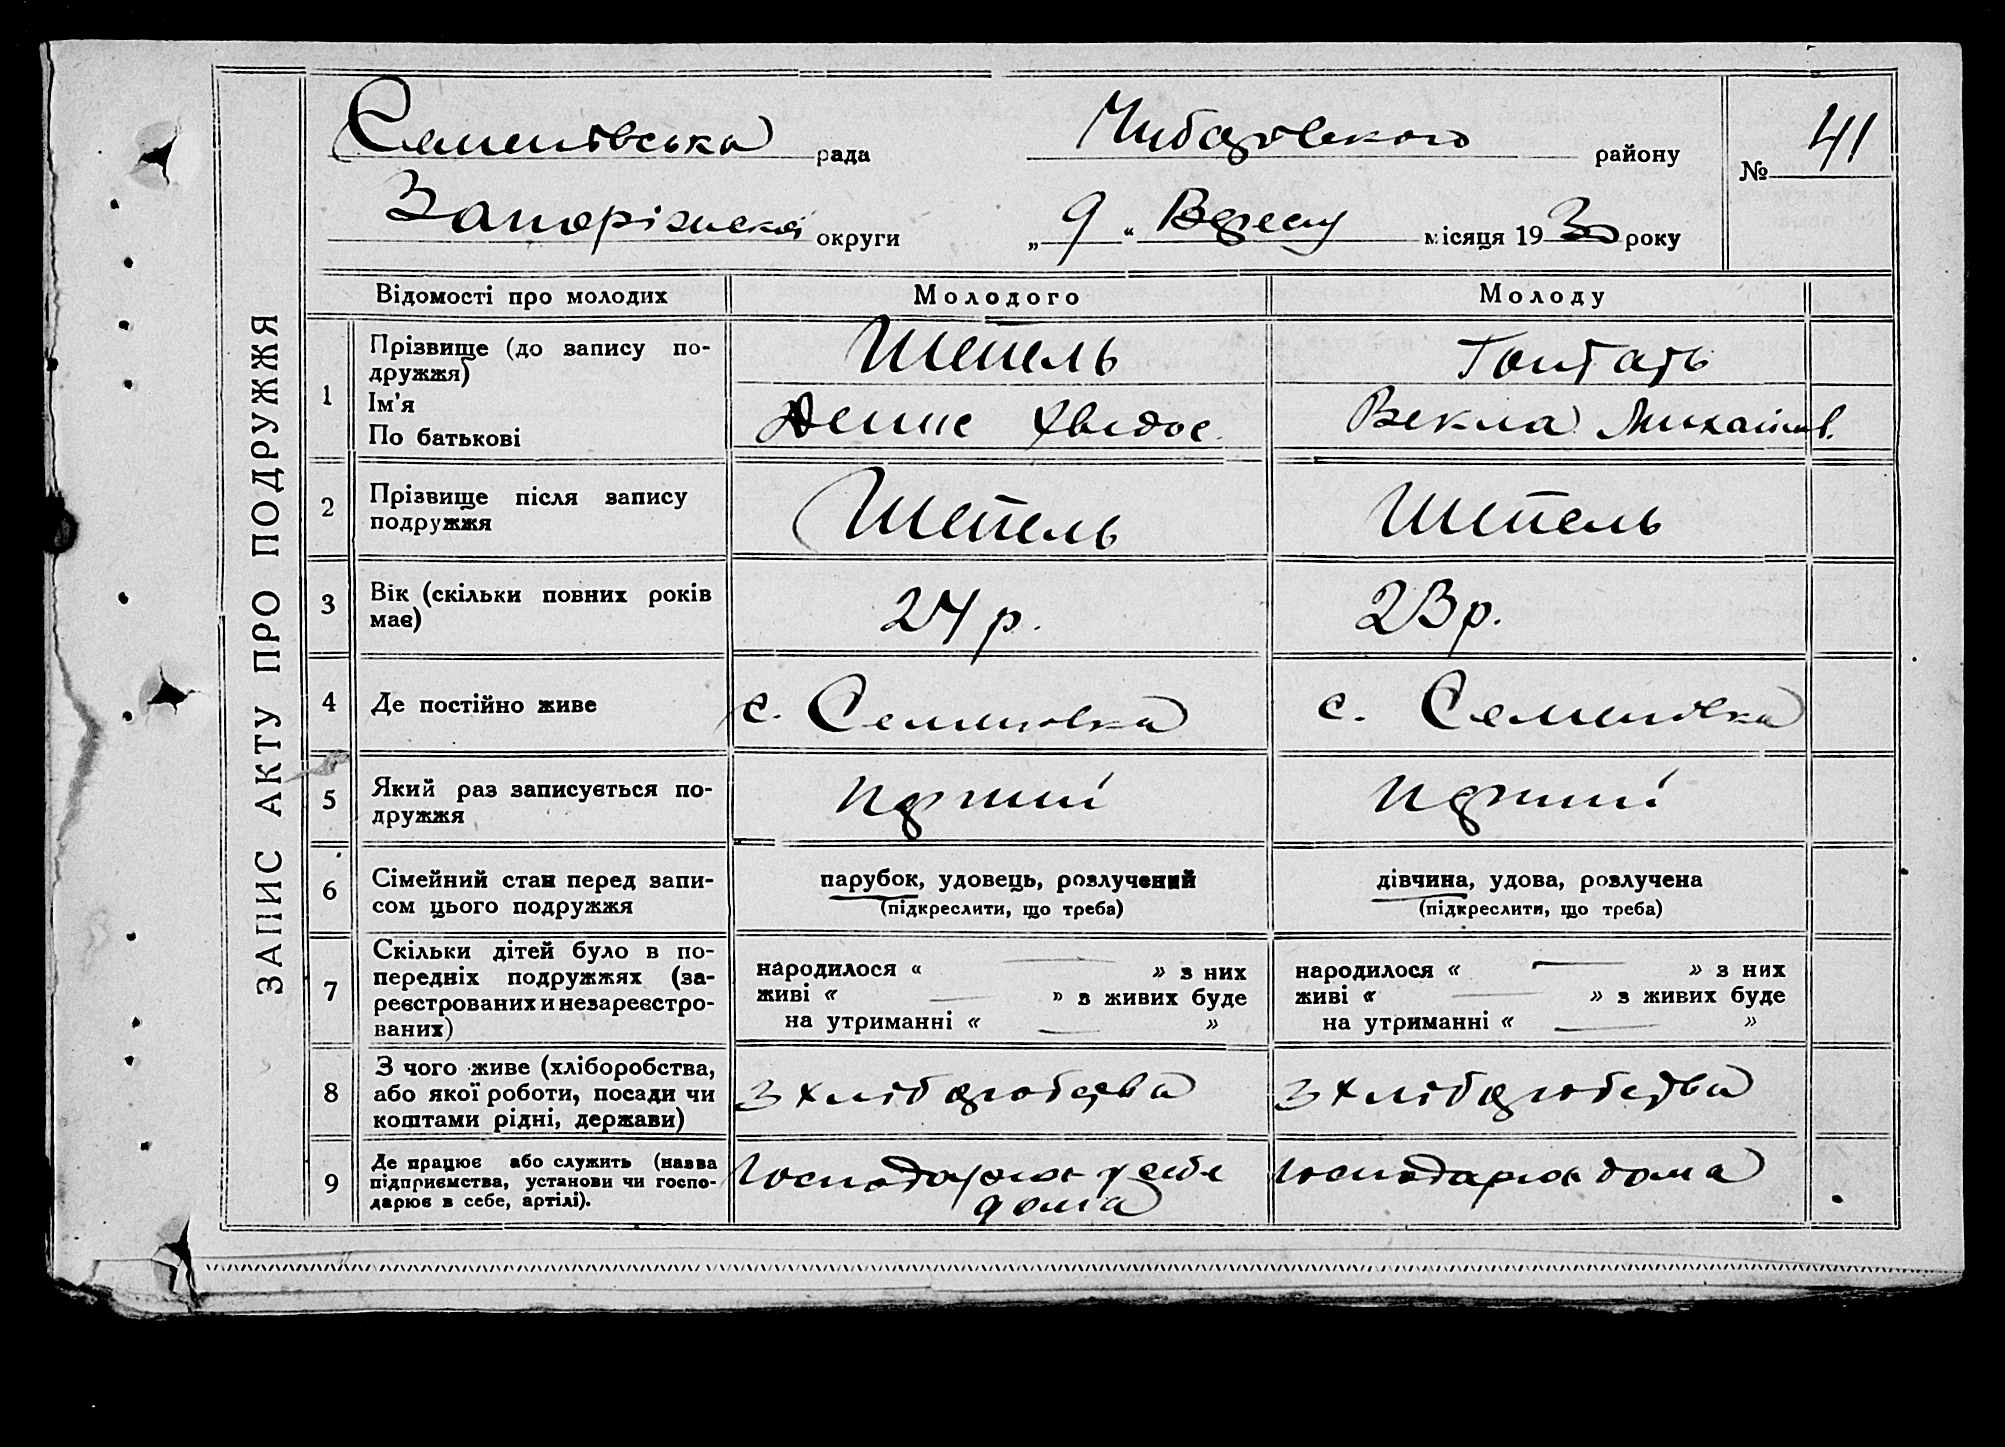 ЗАПИС АКТУ ПРО ПОДРУЖЖЯ
Семенівська рада Чубарівського району № 41
Запорізської округи „ 9 “ Вересня місяця 1930 року
Відомості про молодих Молодого Молоду
1 Прізвище (до запису по-
дружжя) Шепель
Ім'я
По батькові Денис Хведос. Векла Михайлов.
2 Прізвище після запису
подружжя Шепель Шепель
3 Вік (скільки повних років
має) 24 р. 23 р.
4 Де постійно живе с. Семеновка с. Семенівка
5 Який раз записується по-
дружжя перший перший
6 Сімейний стан перед запи-
сом цього подружжя парубок, удовець, розлучений
(підкреслити, що треба) дівчина, удова, розлучена
(підкреслити, що треба)
7 Скільки дітей було в по-
передніх подружжях (за-
реєстрованих и незареєстро-
ваних) народилося « — » з них
живі « — » з живих буде
на утриманні « — » народилося « — » з них
живі « — » з живих буде
на утриманні « — »
8 З чого живе (хліборобства,
або якої роботи, посади чи
коштами рідні, держави) з хліборобства з хліборобства
9 Де працює або служить (назва
підприємства, установи чи госпо-
дарює в себе, артілі). у себе
дома дома